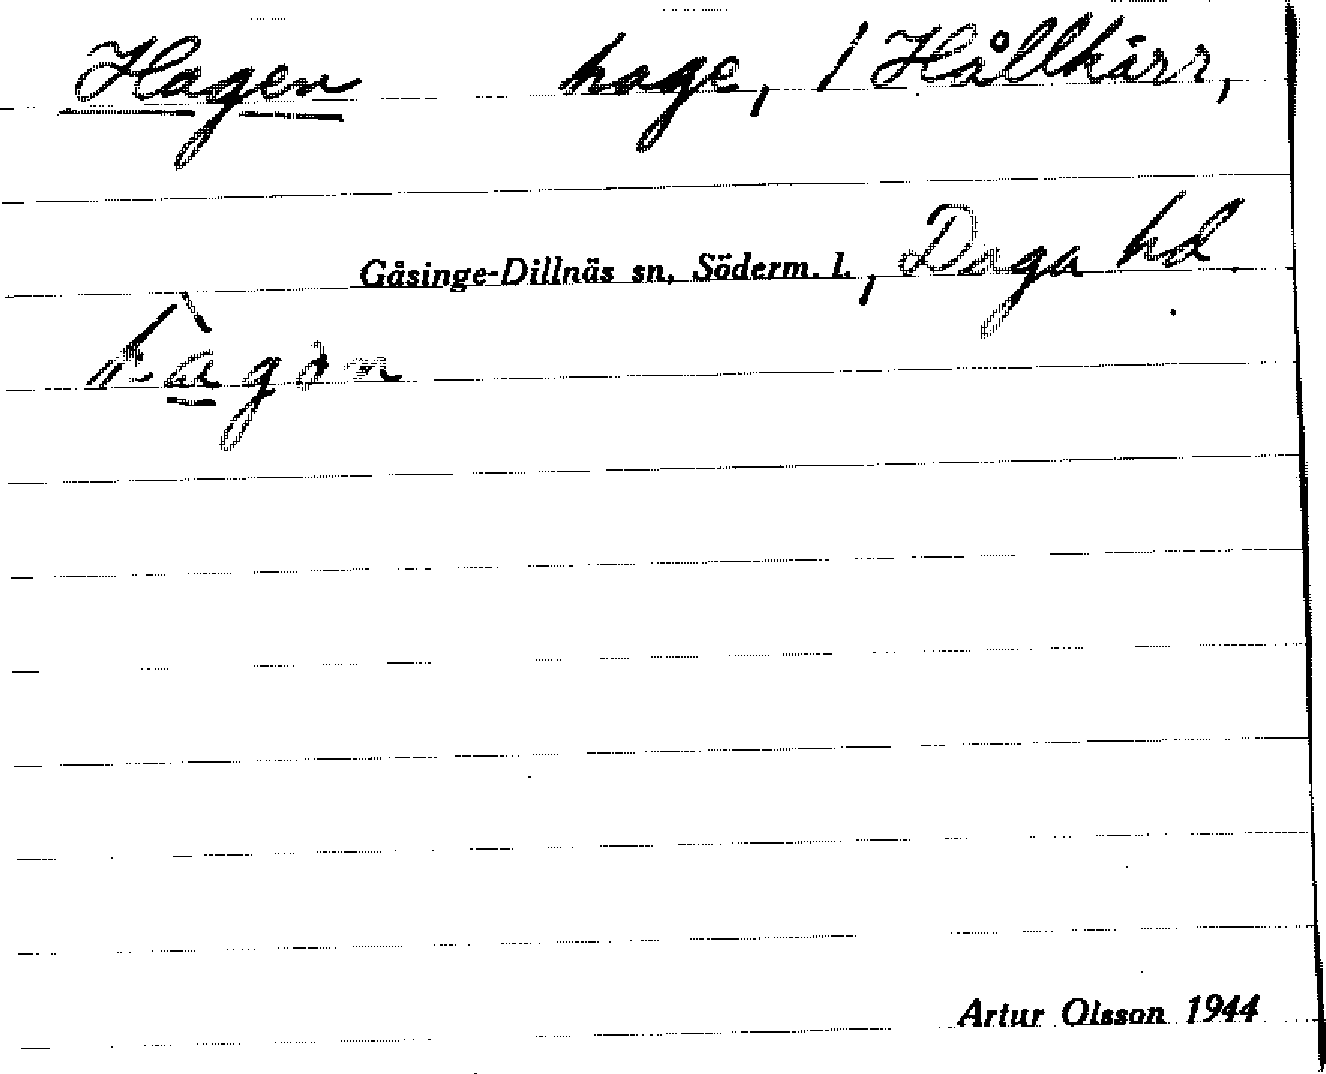 Hagen hage, / Hållkärr,
Gåsinge-Dillnäs sn, Söderm. l., Daga hd.
hàgən
Artur Olsson 1944